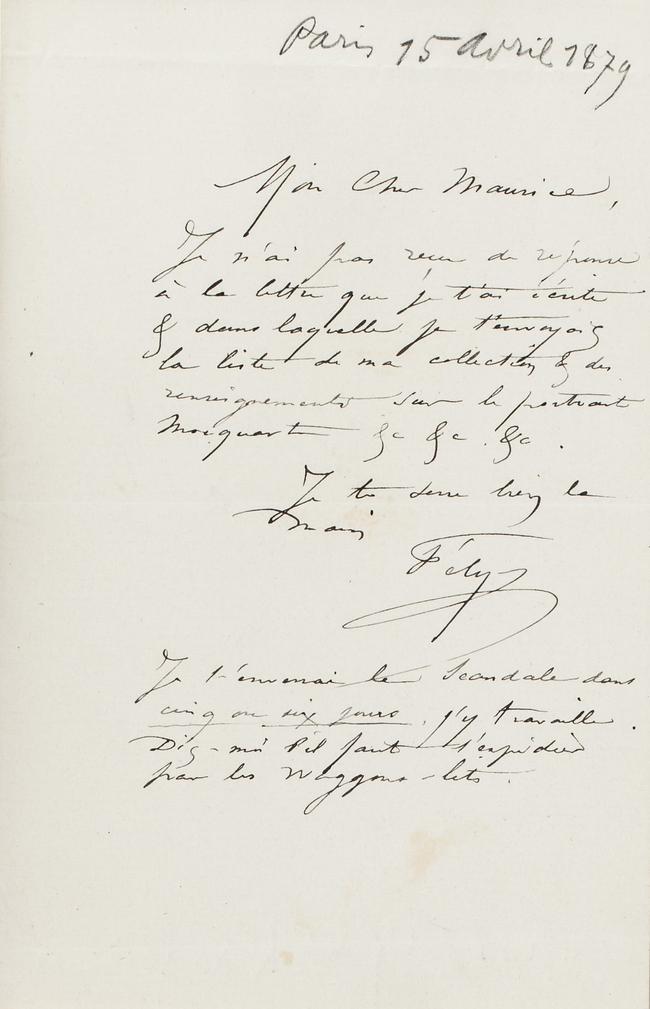 Paris 15 Avril 1879
Mon Cher Maurice,
Je n'ai pas recu de réponse
à la lettre que je t'ai écrite
& dans laquelle je t'envoyais
la liste de ma collection & des
renseignements sur le portrait
&c &c. &c.
Je te serre bien la
main
Fély
Je t'enverrai le Scandale dans
cinq ou six jours, j'y travaille.
Dis-moi s'il faut l'expédier
par les Waggons-lits.